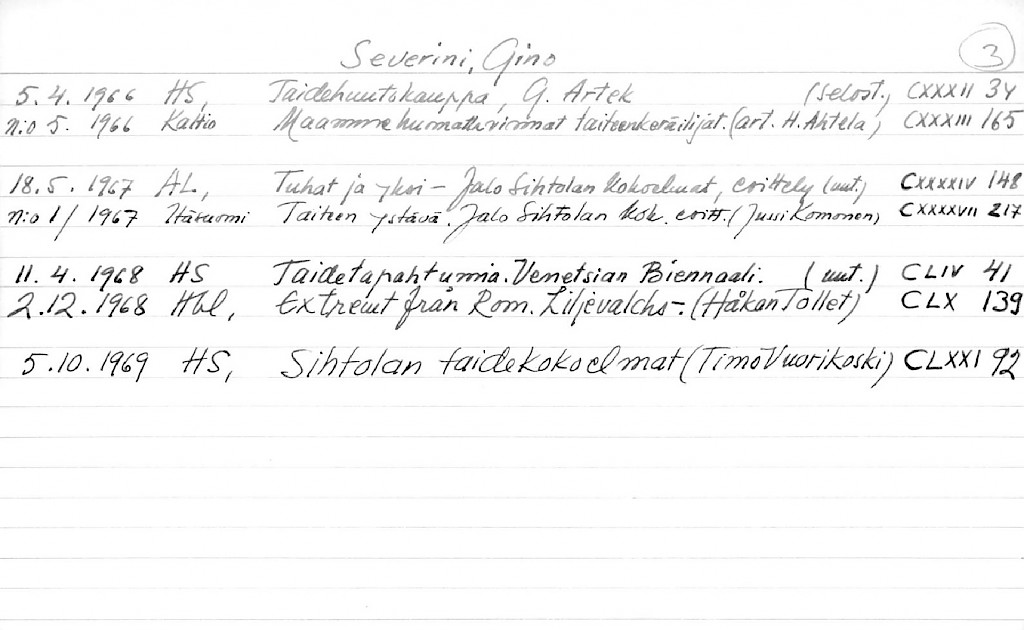 Severini, Gino 3
5.4.1966 HS, Taidehuutokauppa, G. Artek (selost.) CXXXII 34
N:o 5. 1966 Kaltio Maamme huomattavimmat taiteenkeräilijat. (art. H. Ahtela) CXXXIII 165
18.5.1967 AL, Tuhat ja yksi – Jalo Sihtolan kokoelmat, esittely (uut.) CXXXXIV 148
N:o 1/1967 Itäsuomi Taiteen ystävä, Jalo Sihtolan kok. esitt. (Jussi Komonen) CXXXXVII 217
11.4.1968 HS Taidetapahtumia. Venetsian Biennaali. (uut.) CLIV 41
2.12.1968 Hbl, Extremt från Rom. Liljevalchs -. (Håkan Tollet) CLX 139
5.10.1969 HS, Sihtolan taidekokoelmat (Timo Vuorikoski) CLXXI 92